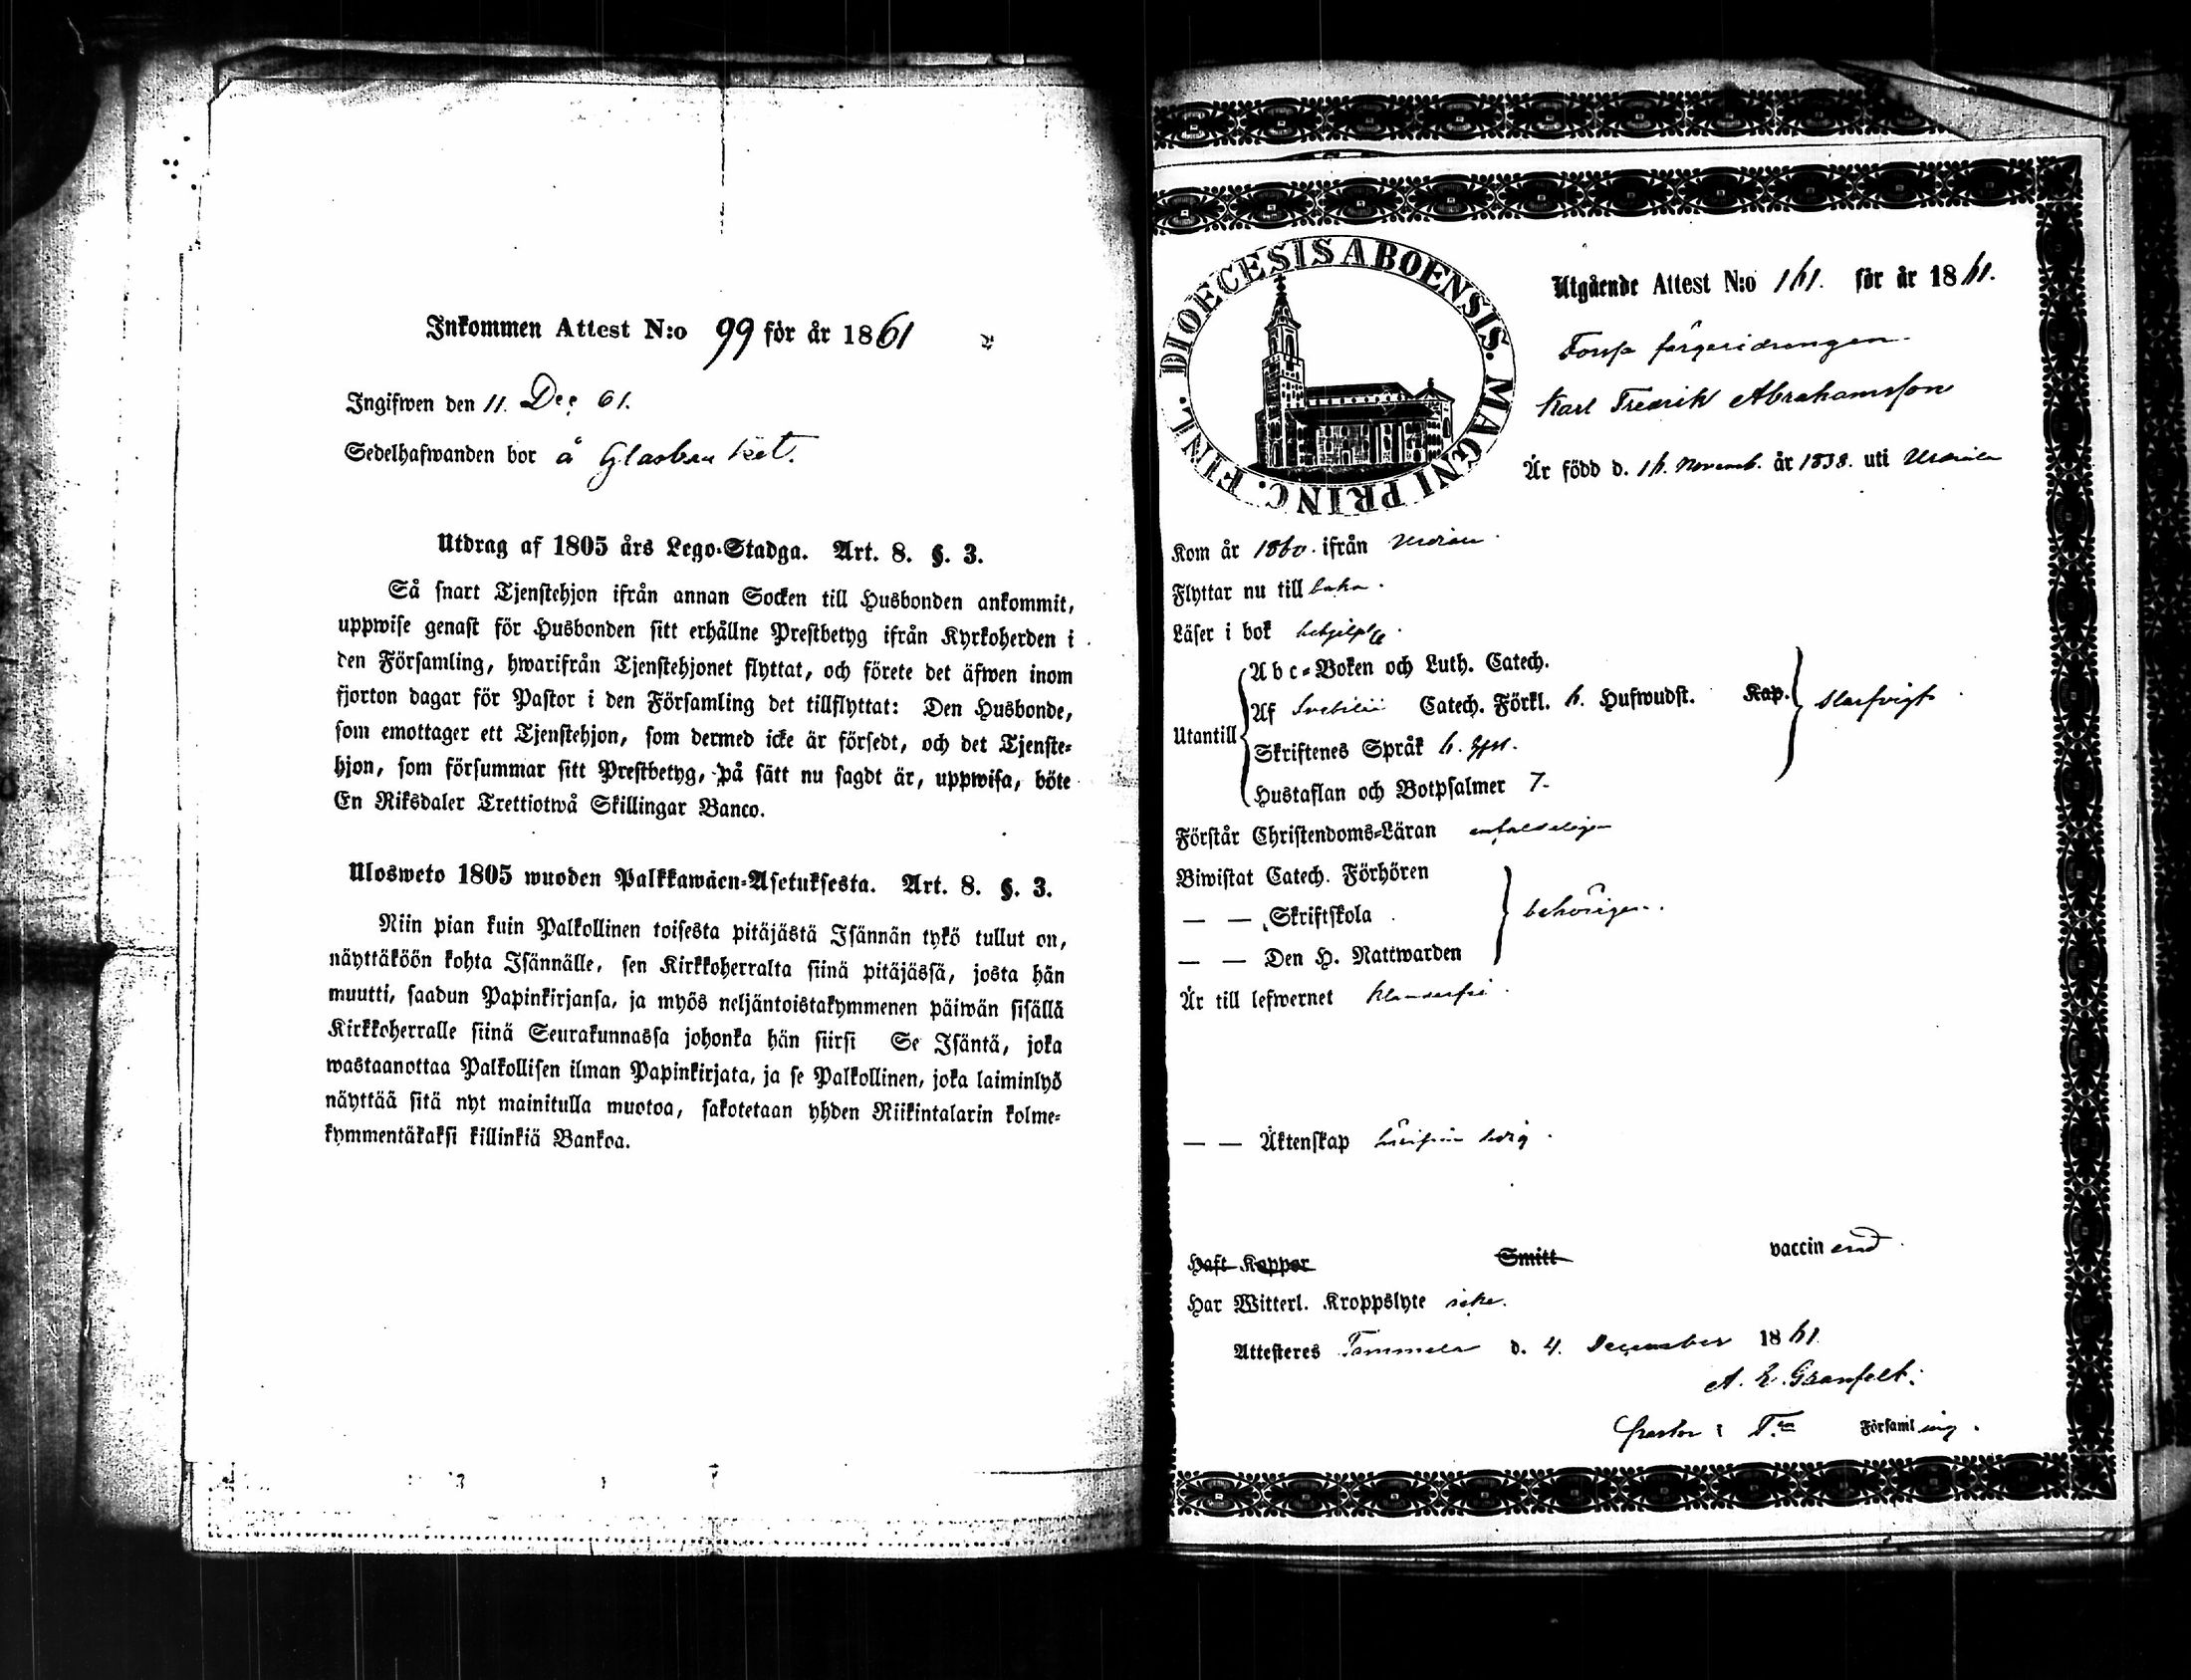 Inkommen Attest N:o 99 för år 1861
Ingifwen den 11. Dec 61.
Sedelhafwanden bor å Glasbruket.
Utdrag af 1805 års Lego-Stadga. Art. 8. §. 3.
Så snart Tjenstehjon ifrån annan Socken till Husbonden ankommit,
uppwise genast för Husbonden sitt erhållne Prestbetyg ifrån Kyrkoherden i
den Församling, hwarifrån Tjenstehjonet flyttat, och förete det äfwen inom
fjorton dagar för Pastor i den Församling det tillflyttat: Den Husbonde,
som emottager ett Tjenstehjon, som dermed icke är försedt, och det Tjenste-
hjon, som försummar sitt Prestbetyg, på sätt nu sagdt är, uppwisa, böte
En Riksdaler Trettiotwå Skillingar Banco.
Ulosweto 1805 wuoden Palkkawäen-Asetuksesta. Art. 8. §. 3.
Niin pian kuin Palkollinen toisesta pitäjästä Isännän tykö tullut on,
näyttäköön kohta Isännälle, sen Kirkkoherralta siinä pitäjässä, josta hän
muutti, saadun Papinkirjansa, ja myös neljäntoistakymmenen päiwän sisällä
Kirkkoherralle siinä Seurakunnassa johonka hän siirsi Se Isäntä, joka
wastaanottaa Palkollisen ilman Papinkirjata, ja se Palkollinen, joka laiminlyö
näyttää sitä nyt mainitulla muotoa, sakotetaan yhden Riikintalarin kolme-
kymmentäkaksi killinkiä Bankoa.
DIOECESIS ABOENSIS. MAGNI PRINC. FINL.
Utgående Attest N:o 161. för år 1861.
Forssa färgeridrengen
Karl Fredrik Abrahamsson
Är född d. 16. Novemb. år 1838. uti Urdiala
Kom år 1860. ifrån Urdiala
Flyttar nu till baka.
Läser i bok behjelpl.
Utantill
Abc-Boken och Luth. Catech.
Af Svebilii Catech. Förkl. 6. Hufwudst. Kap.
slarfvigt
Skriftenes Språk 6.
Hustaflan och Botpsalmer 7.
Förstår Christendoms-Läran enfaldeligen
Biwistat Catech. Förhören
— — Skriftskola
behörigen.
— — Den H. Nattwarden
Är till lefwernet klanderfri.
— — Äktenskap ledig.
Haft Koppor Smitt vaccinerad.
Har Witterl. Kroppslyte icke.
Attesteres Tammela d. 4. December 1861
A. E. Granfelt.
Pastor i T:la Församling.